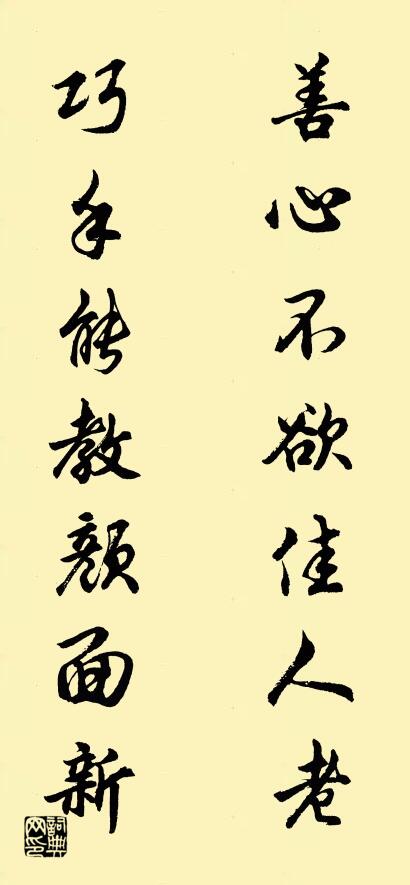 善心不欲佳人老
巧手能教颜面新
詞典網印